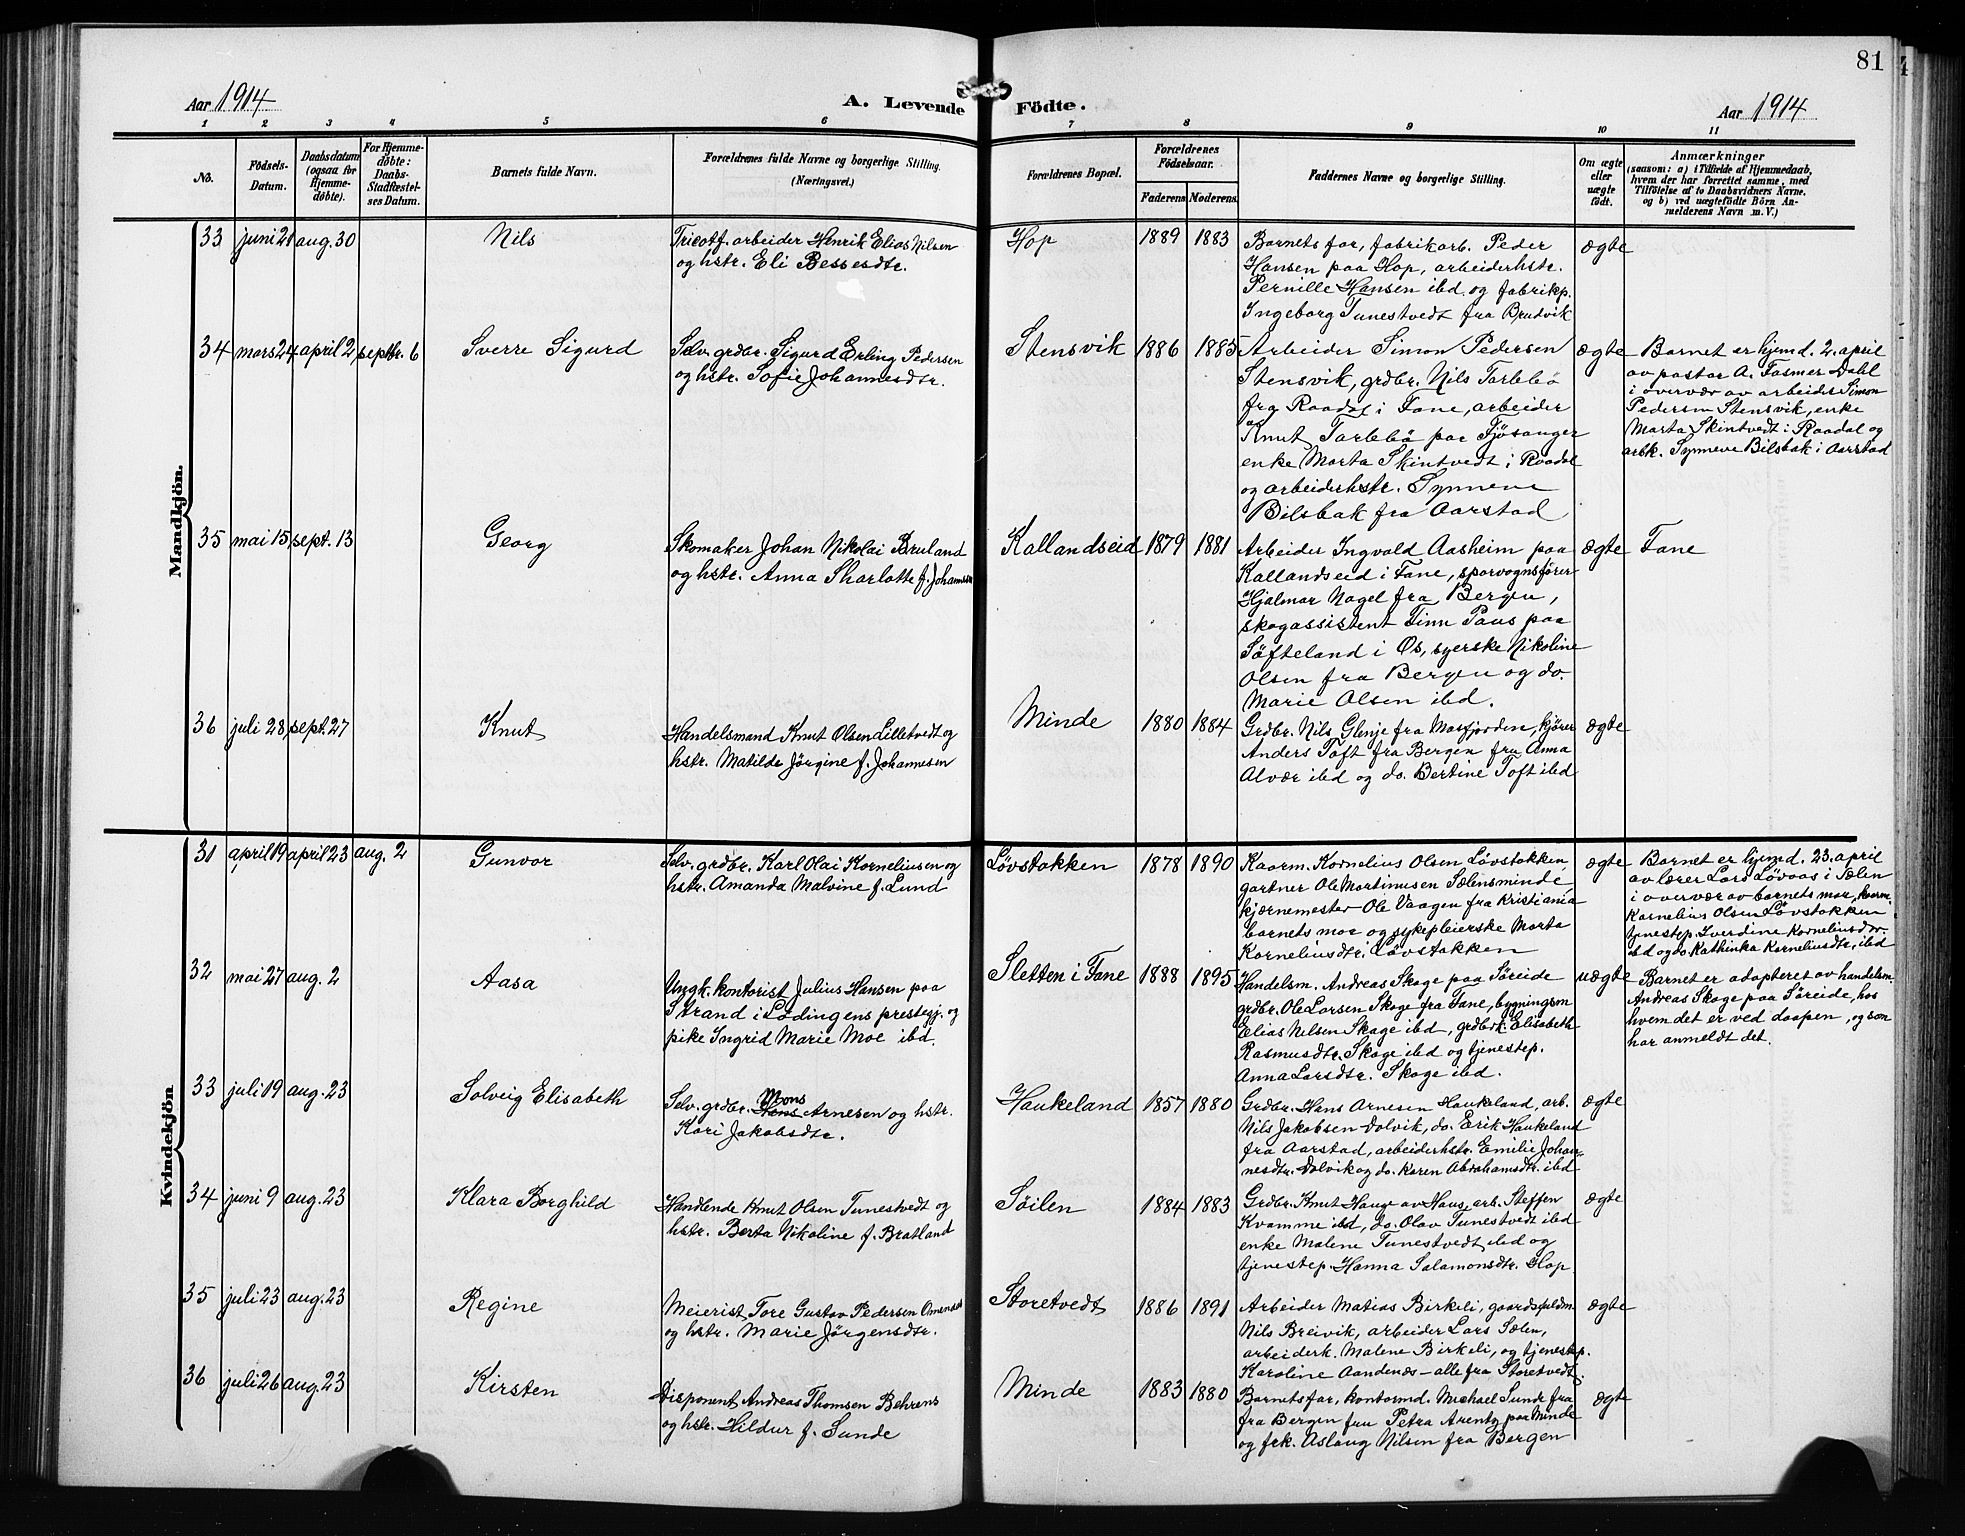 81
Aar 1914
A. Levende Födte.
Aar 1914
1 2 3 4 5 6 7 8 9 10 11
No.
Födsels-
Datum.
Daabsdatum
(ogsaa for
Hjemme-
døbte).
For Hjemme-
døbte:
Daabs-
Stadfæstel-
ses Datum.
Barnets fulde Navn.
Forældrenes fulde Navne og borgerlige Stilling.
(Næringsvei.)
Forældrenes Bopæl.
Forældrenes
Födselsaar.
Faderens Moderens
Faddernes Navne og borgerlige Stilling.
Om ægte
eller
uægte
født.
Anmærkninger
(saasom: a) i Tilfælde af Hjemmedaab,
hvem der har forrettet samme, med
Tilföielse af to Daabsvidners Navne,
og b) ved uægtefödte Börn An-
melderens Navn m. V.)
Mandkjön.
33 juni 21 aug. 30
Nils
Tricotf. arbeider Henrik Elias Nilsen
og hstr. Eli Bessesdtr.
Hop
1889 1883
Barnets far, fabrikarb. Peder
Hansen paa Hop, arbeiderhstr.
Pernille Hansen ibd. og fabrikp.
Ingeborg Tunestvedt fra Brudvik
ægte
34 mars 24 april 2 septbr. 6
Sverre Sigurd
Selv. grdbr. Sigurd Erling Pedersen
og hstr. Sofie Johannesdtr.
Stensvik
1886 1885
Arbeider Simon Pedersen
Stensvik, grdbr. Nils Tarlebø
fra Raadal i Fane, arbeider
Knut Tarlebø paa Fjøsanger
enke Marta Skintvedt i Raadal
og arbeiderhstr. Synneve
Bilsbak fra Aarstad
ægte
Barnet er hjemd. 2. april
av pastor A. Fasmer Dahl
i overvær av arbeider Simon
Pedersen Stensvik, enke
Marta Skintvedt i Raadal og
arbk. Synneve Bilsbak i Aarstad
35 mai 15 sept. 13
Georg
Skomaker Johan Nikolai Bruland
og hstr. Anna Sharlotte f. Johannsen
Kallandseid
1879 1881
Arbeider Ingvald Aasheim paa
Kallandseid i Fane, sporvognsfører
Hjalmar Nagel fra Bergen,
skogassistent Finn Paus paa
Søfteland i Os, syerske Nikoline
Olsen fra Bergen og do.
Marie Olsen ibd.
ægte
Fane
36 juli 28 sept. 27
Knut
Handelsmand Knut Olsen Lilletvedt og
hstr. Matilde Jörgine f. Johannesen
Minde
1880 1884
Grdbr. Nils Glenje fra Masfjorden, kjører
Anders Toft fra Bergen fru Anna
Alvær ibd og do. Bertine Toft ibd
ægte
Kvindekjön
31 april 19 april 23 aug. 2
Gunvor
Selv. grdbr. Karl Olai Korneliussen og
hstr. Amanda Malvine f. Lund
Løvstakken
1878 1890
Kaarm. Kornelius Olsen Løvstakken
gartner Ole Martinusen Sælensminde
kjærnemester Ole Vaagen fra Kristiania
barnets mor og sykepleierske Marta
Korneliusdtr. Løvstakken
ægte
Barnet er hjemd. 23. april
av lærer Lars Løvaas i Sælen
i overvær av barnets mor, kaarm.
Kornelius Olsen Løvstakken
tjenestep. Sverdine Korneliusdtr.
ibd og do. Kathinka Korneliusdtr. ibd
32 mai 27 aug. 2
Aasa
Ungk. kontorist Julius Hansen paa
Strand i Lødingens prestegj. og
pike Ingrid Marie Moe ibd.
Sletten i Fane
1888 1895
Handelsm. Andreas Skage paa Søreide
grdbr. Ole Larsen Skage fra Fane, bygningsm
Elias Nilsen Skage ibd, grdbrk. Elisabeth
Rasmusdtr. Skage ibd og tjenestep.
Anna Larsdtr. Skage ibd.
uægte
Barnet er adopteret av handelsm.
Andreas Skage paa Søreide, hos
hvem det er ved daapen, og som
har anmeldt det.
33 juli 19 aug. 23
Solveig Elisabeth
Mons
Selv. grdbr. Hans Arnesen og hstr.
Kari Jakobsdtr.
Haukeland
1857 1880
Grdbr. Hans Arnesen Haukeland, arb.
Nils Jakobsen Dolvik, do. Erik Haukeland
fra Aarstad, arbeiderhstr. Emilie Johan-
nesdtr. Dolvik og do. Karen Abrahamsdtr. ibd
ægte
34 juni 9 aug. 23
Klara Borghild
Handlende Knut Olsen Tunestvedt og
hstr. Berta Nikoline f. Bratland
Søilen
1884 1883
Grdbr. Knut Hauge av Haus, arb. Steffen
Kvamme ibd, do. Olav Tunestvedt ibd
enke Malene Tunestvedt ibd og
tjenestep. Hanna Salamonsdtr. Hop
ægte
35 juli 23 aug. 23
Regine
Meierist Tore Gustav Pedersen
og hstr. Marie Jörgensdtr.
Storetvedt
1886 1891
Arbeider Matias Birkeli, gaardsfuldm.
Nils Breivik, arbeider Lars Sælen,
arbeiderk. Malene Birkeli, og tjenestep.
Karoline Aandenæs – alle fra Storetvedt.
ægte
36 juli 26 aug. 23
Kirsten
Disponent Andreas Thomsen Behrens
og hstr. Hildur f. Sunde
Minde
1883 1880
Barnets far, kontormd. Michael Sunde fra
fra Bergen fru Petra Arentz paa Minde
og frk. Aslaug Nilsen fra Bergen
ægte